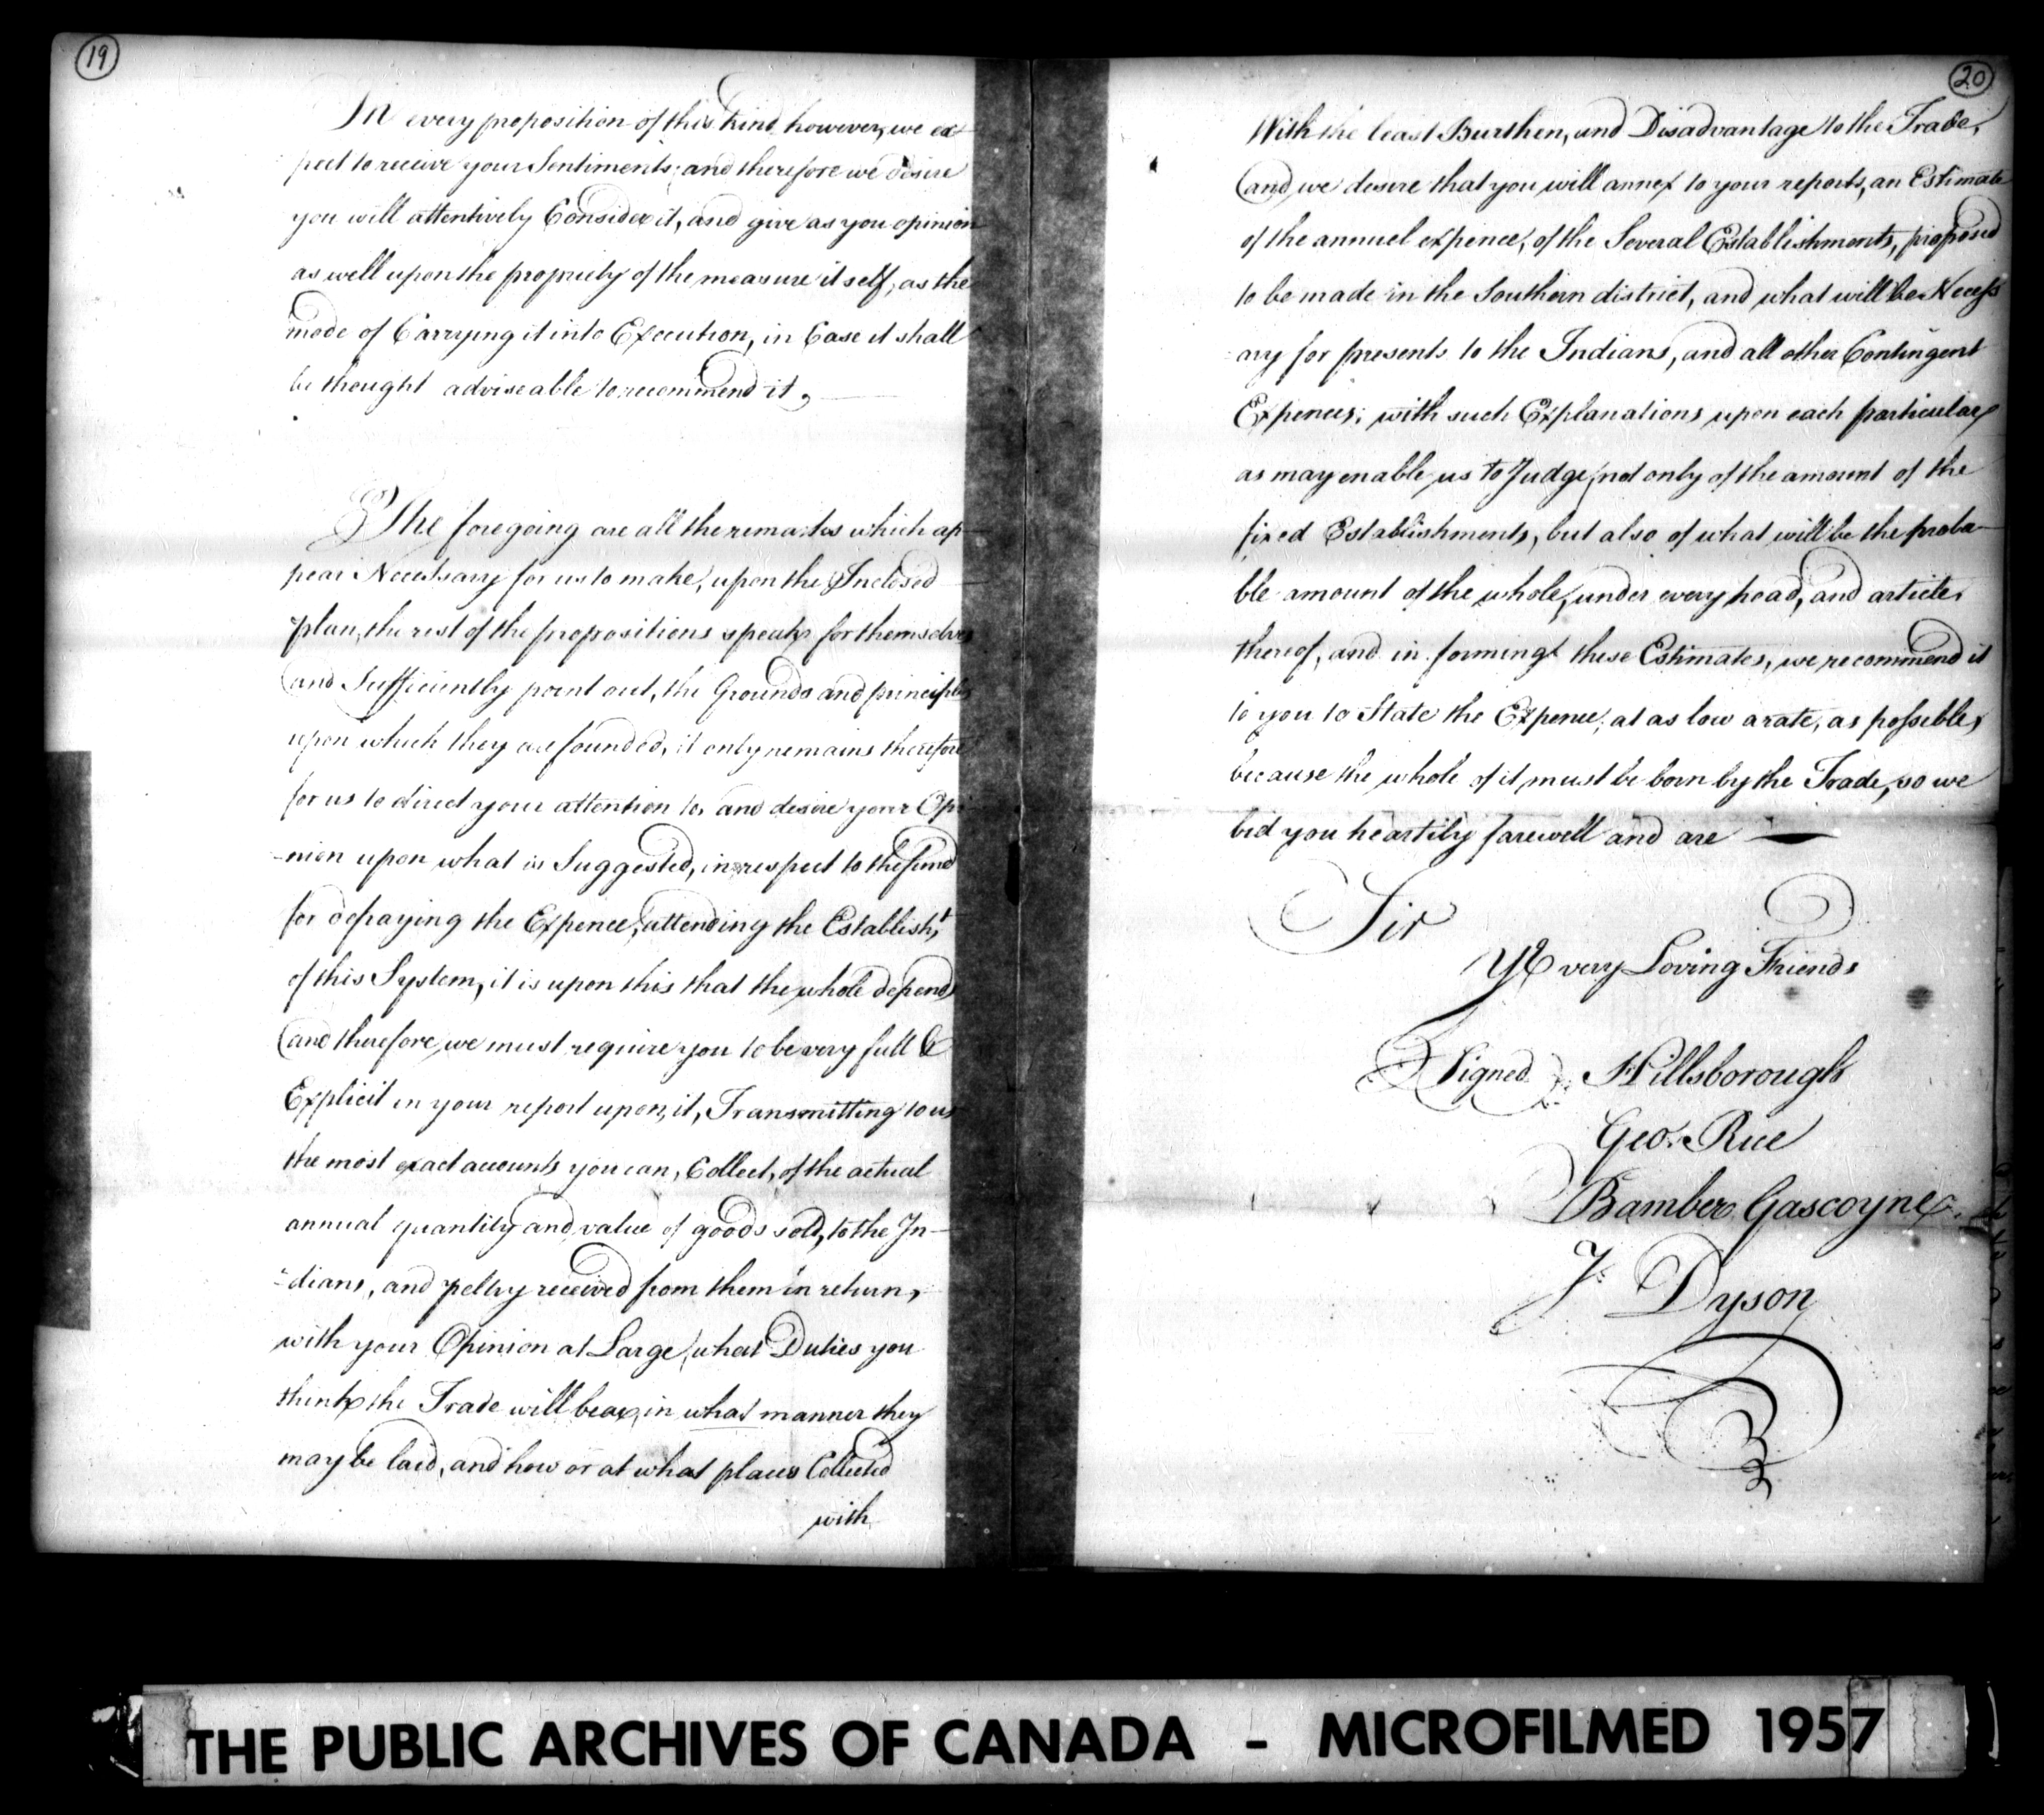 19
In every proposition of this kind however, we ex
pect to receive your Sentiments; and therefore we desire
you will attentively Consider it, and give as you opinion
as well upon the propriety of the measure it self, as the
mode of Carrying it into Execution, in Case it shall
be thought adviseable to recommend it,
The foregoing are all the remarks which ap-
pear Necessary for us to make, upon the Inclosed
plan, the rest of the propositions speaks for themselves
and Sufficiently point out, the Grounds and principles
upon which they are founded, it only remains therefore
for us to direct your attention to, and desire your Opi
-nion upon what is Suggested, in respect to the fund
for defraying the Expence, attending the Establisht,
of this System, it is upon this that the whole depends
and therefore we must require you to be very full &
Explicit in your report upon it, Transmitting to us
the most exact accounts you can, Collect, of the actual
annual quantity and value of goods sold, to the In-
-dians, and peltry received from them in return,
with your Opinion at Large, what Duties you
think the Trade will bear, in what manner they
may be laid, and how or at what places Collected
with
20
With the least Burthen, and Disadvantage to the Trade,
and we desire that you will annex to your reports, an Estimate
of the annuel expence, of the Several Establishments, proposed
to be made in the Southern district, and what will be Necess
ary for presents to the Indians, and all other Contingent
Expences; with such Explanations upon each particular
as may enable us to Judge, not only of the amount of the
fixed Establishments, but also of what will be the proba-
ble amount of the whole, under every head, and article
thereof, and in forming these Estimates, we recommend it
to you to State the Expence, at as low a rate, as possible,
because the whole of it must be born by the Trade, so we
bid you heartily farewell and are
Sir
Yr very Loving Friends
Signed Hillsborough
Geo. Rice
Bamber Gascoyne
Js Dyson
THE PUBLIC ARCHIVES OF CANADA - MICROFILMED 1957